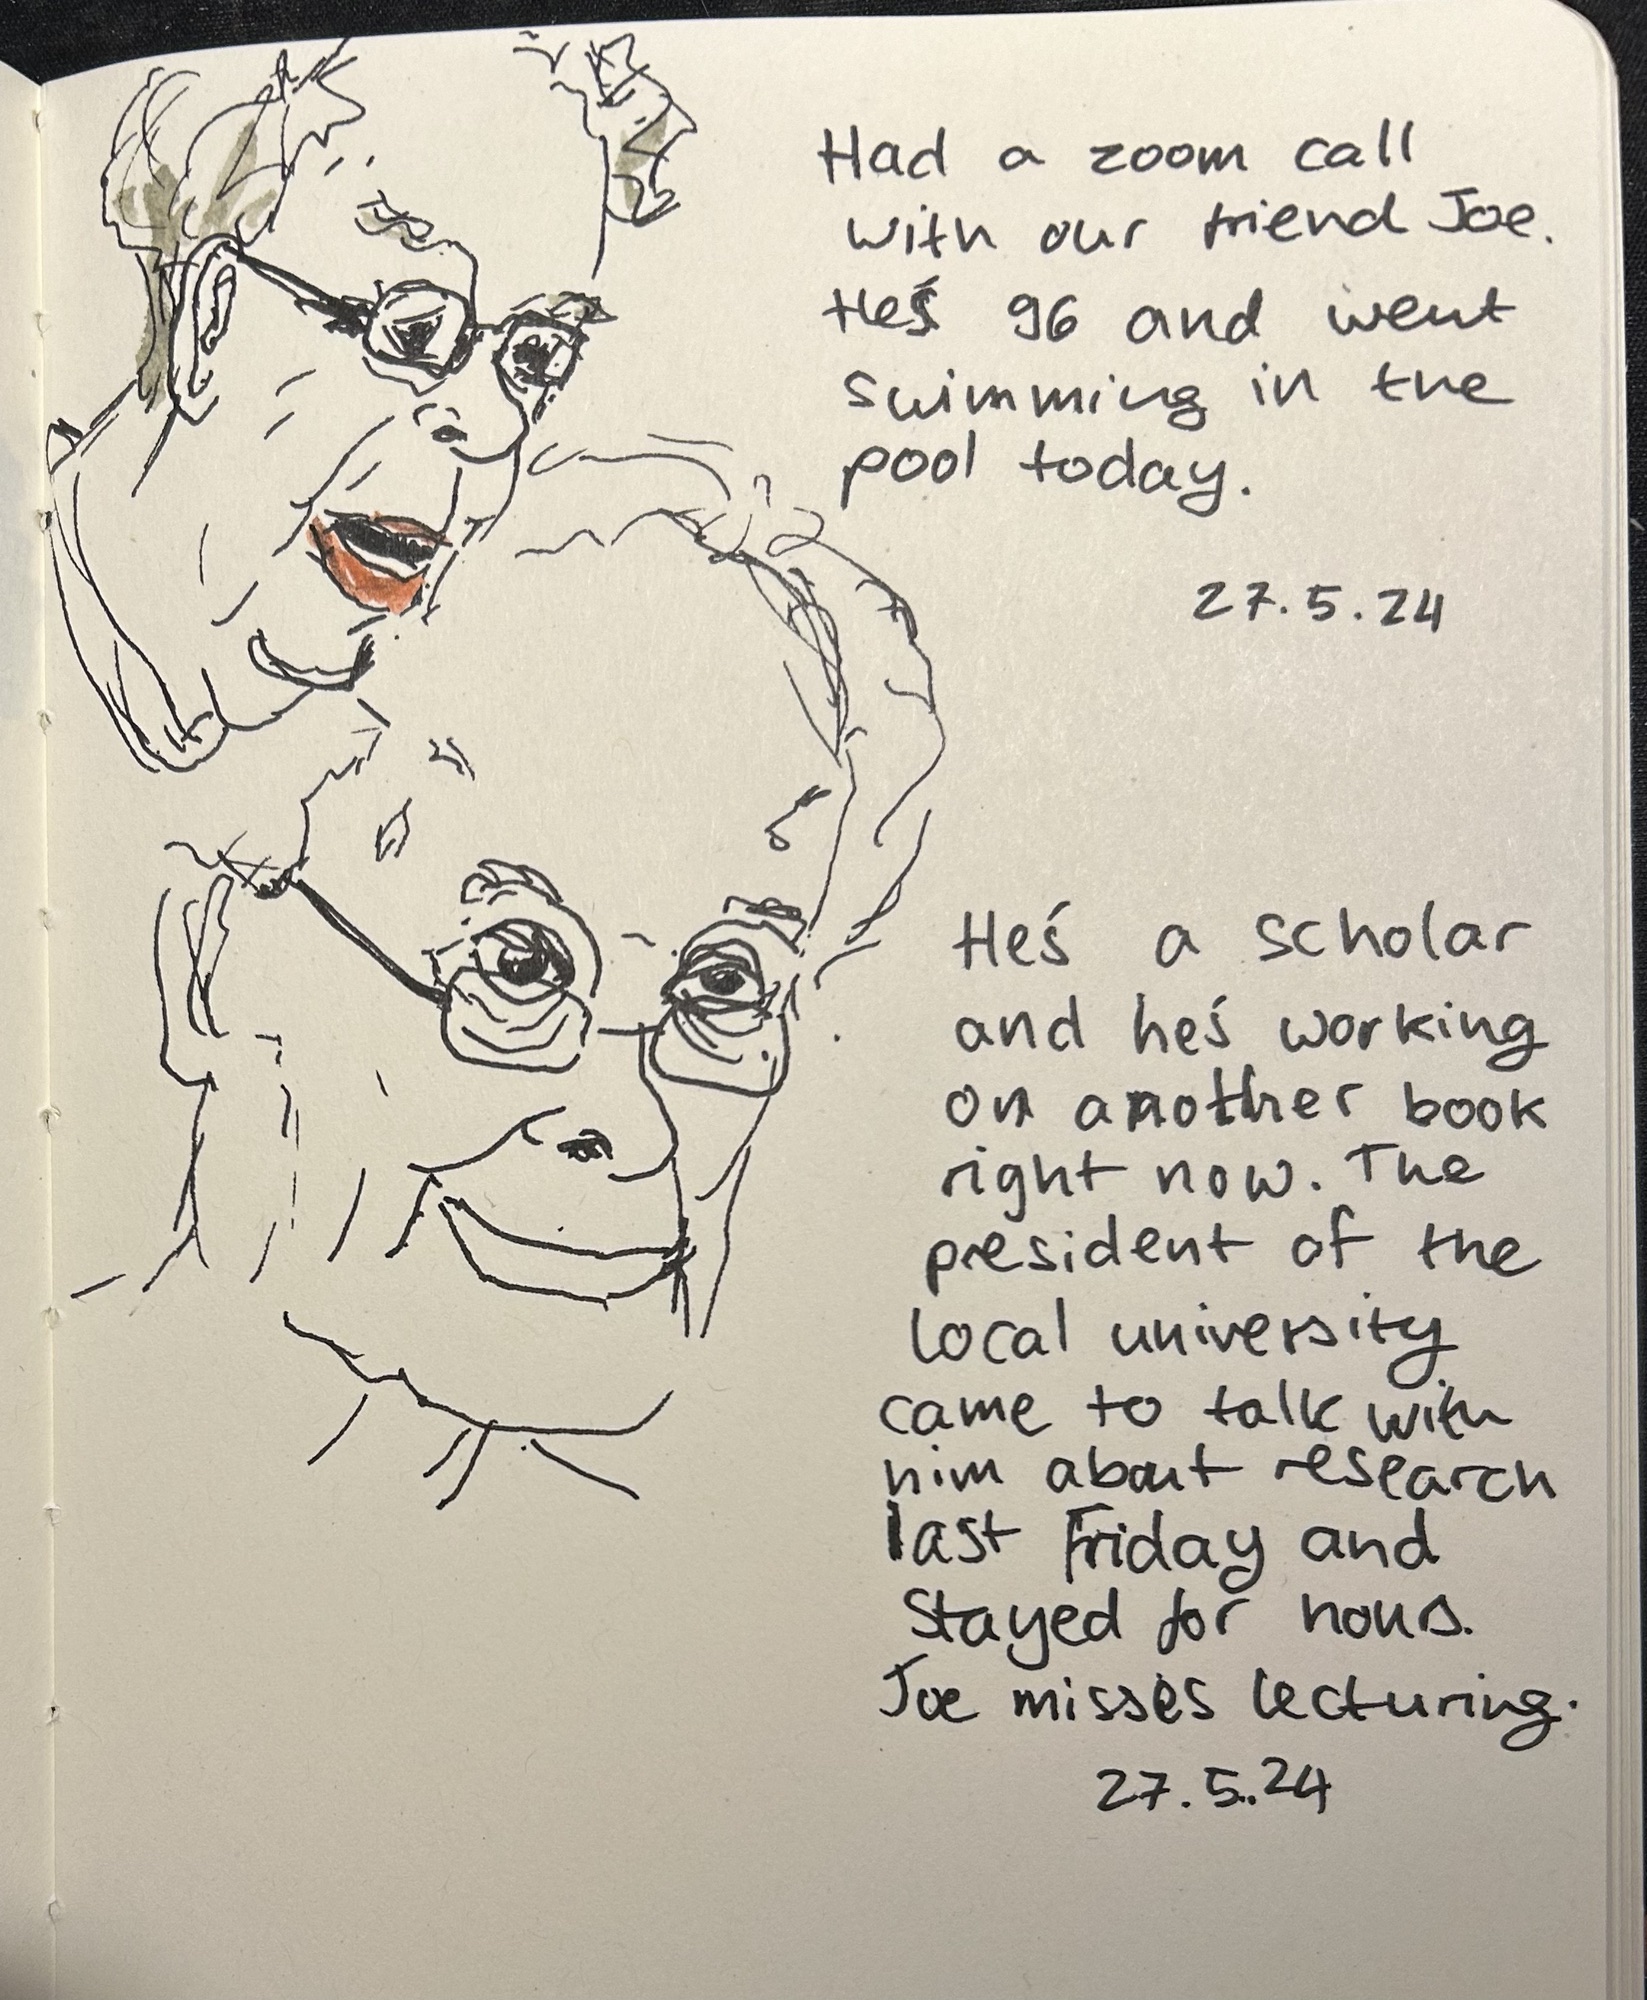 Had a zoom call
with our friend Joe.
He's 96 and went
swimming in the
pool today.
27.5.24
He's a scholar
and he's working
on another book
right now. The
president of the
local university
came to talk with
him about research
last Friday and
stayed for hours.
Joe misses lecturing.
27.5.24